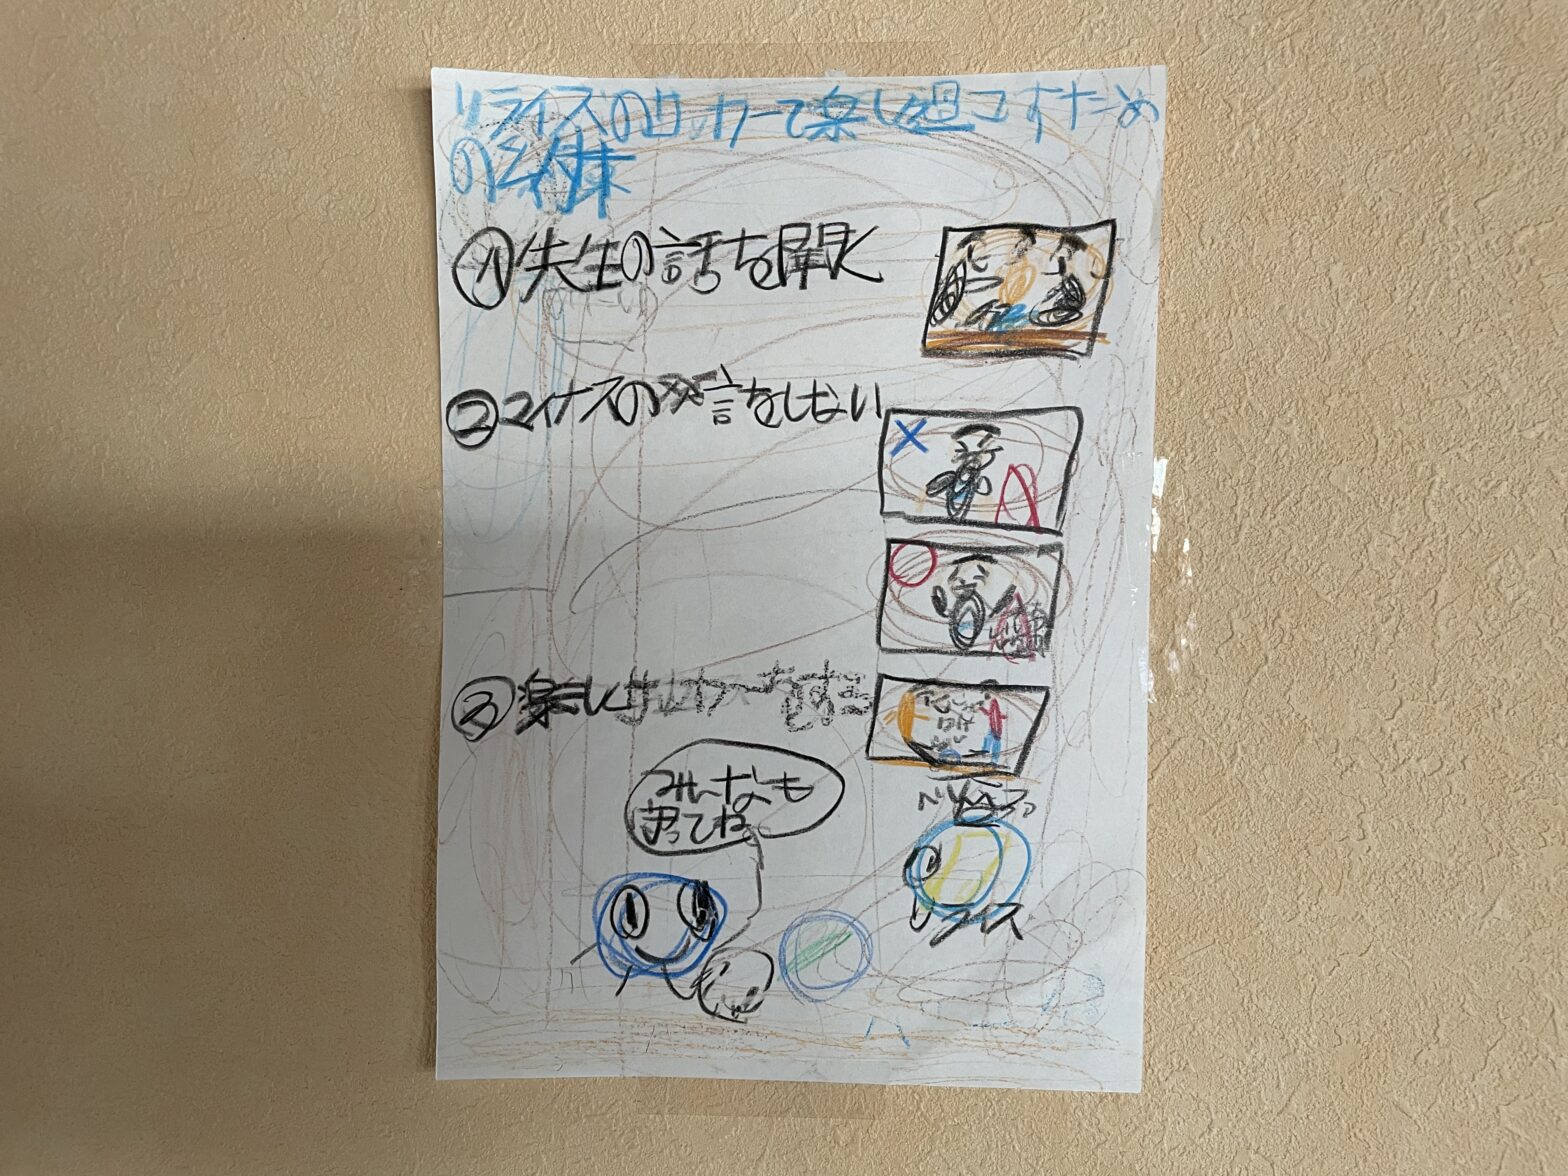 リライスのサッカーで楽しく過ごすため
の条件
①先生の話を聞く
②マイナスの発言をしない
③楽しくサッカーをする
みんなも
守ってね